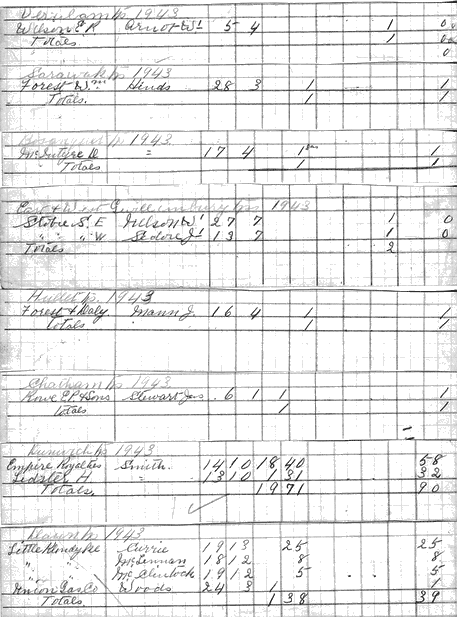 Verulam Tp 1943
Wilson E R Arnot Wm 5 4 1 0
Totals 1 0
0
Sarawak Tp 1943
Forest Wm Hinds 28 3 1 1
Totals. 1 1
Bosanquet Tp 1943
McIntyre D " 17 4 1 1
Totals 1 1
East & West Gwillimbury Tps 1943
Stobie S. E 27 7 1 0
" " " W 13 7 1 0
Totals 2
Hullet Tp. 1943
Forest & Daly Mann J. 16 4 1 1
Totals 1 1
Chatham Tp 1943
Rowe E.P. & Sons Stewart Jas 6 1 1 1
Totals 1 1
Dunwich Tp 1943
Empire Royalties Smith. 14 10 18 40 58
Lidster H " 13 10 1 31 32
Totals. 19 71 90
Dawn Tp 1943
Little Klondyke Currie 19 13 25 25
" " McLennan 18 12 8 8
" " McClintock 19 12 5 5
Union Gas Co Woods 24 3 1 1
Totals. 1 38 39